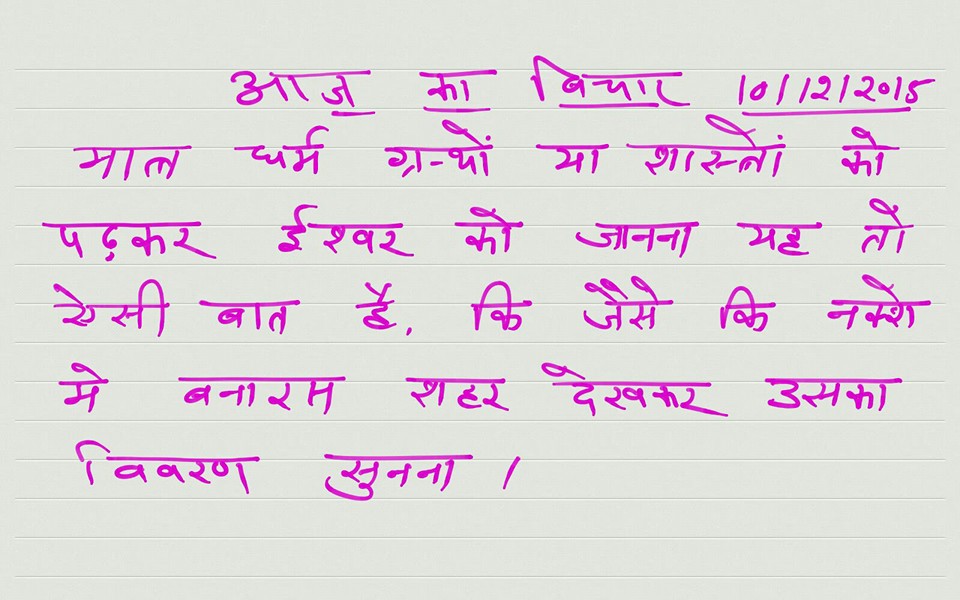 आज का विचार 10/12/2015
मात्र धर्म ग्रन्थों या शास्त्रों को
पढ़कर ईश्वर को जानना यह तो
ऐसी बात है, कि जैसे कि नक्शे
मे बनारस शहर देखकर उसका
विवरण सुनना ।